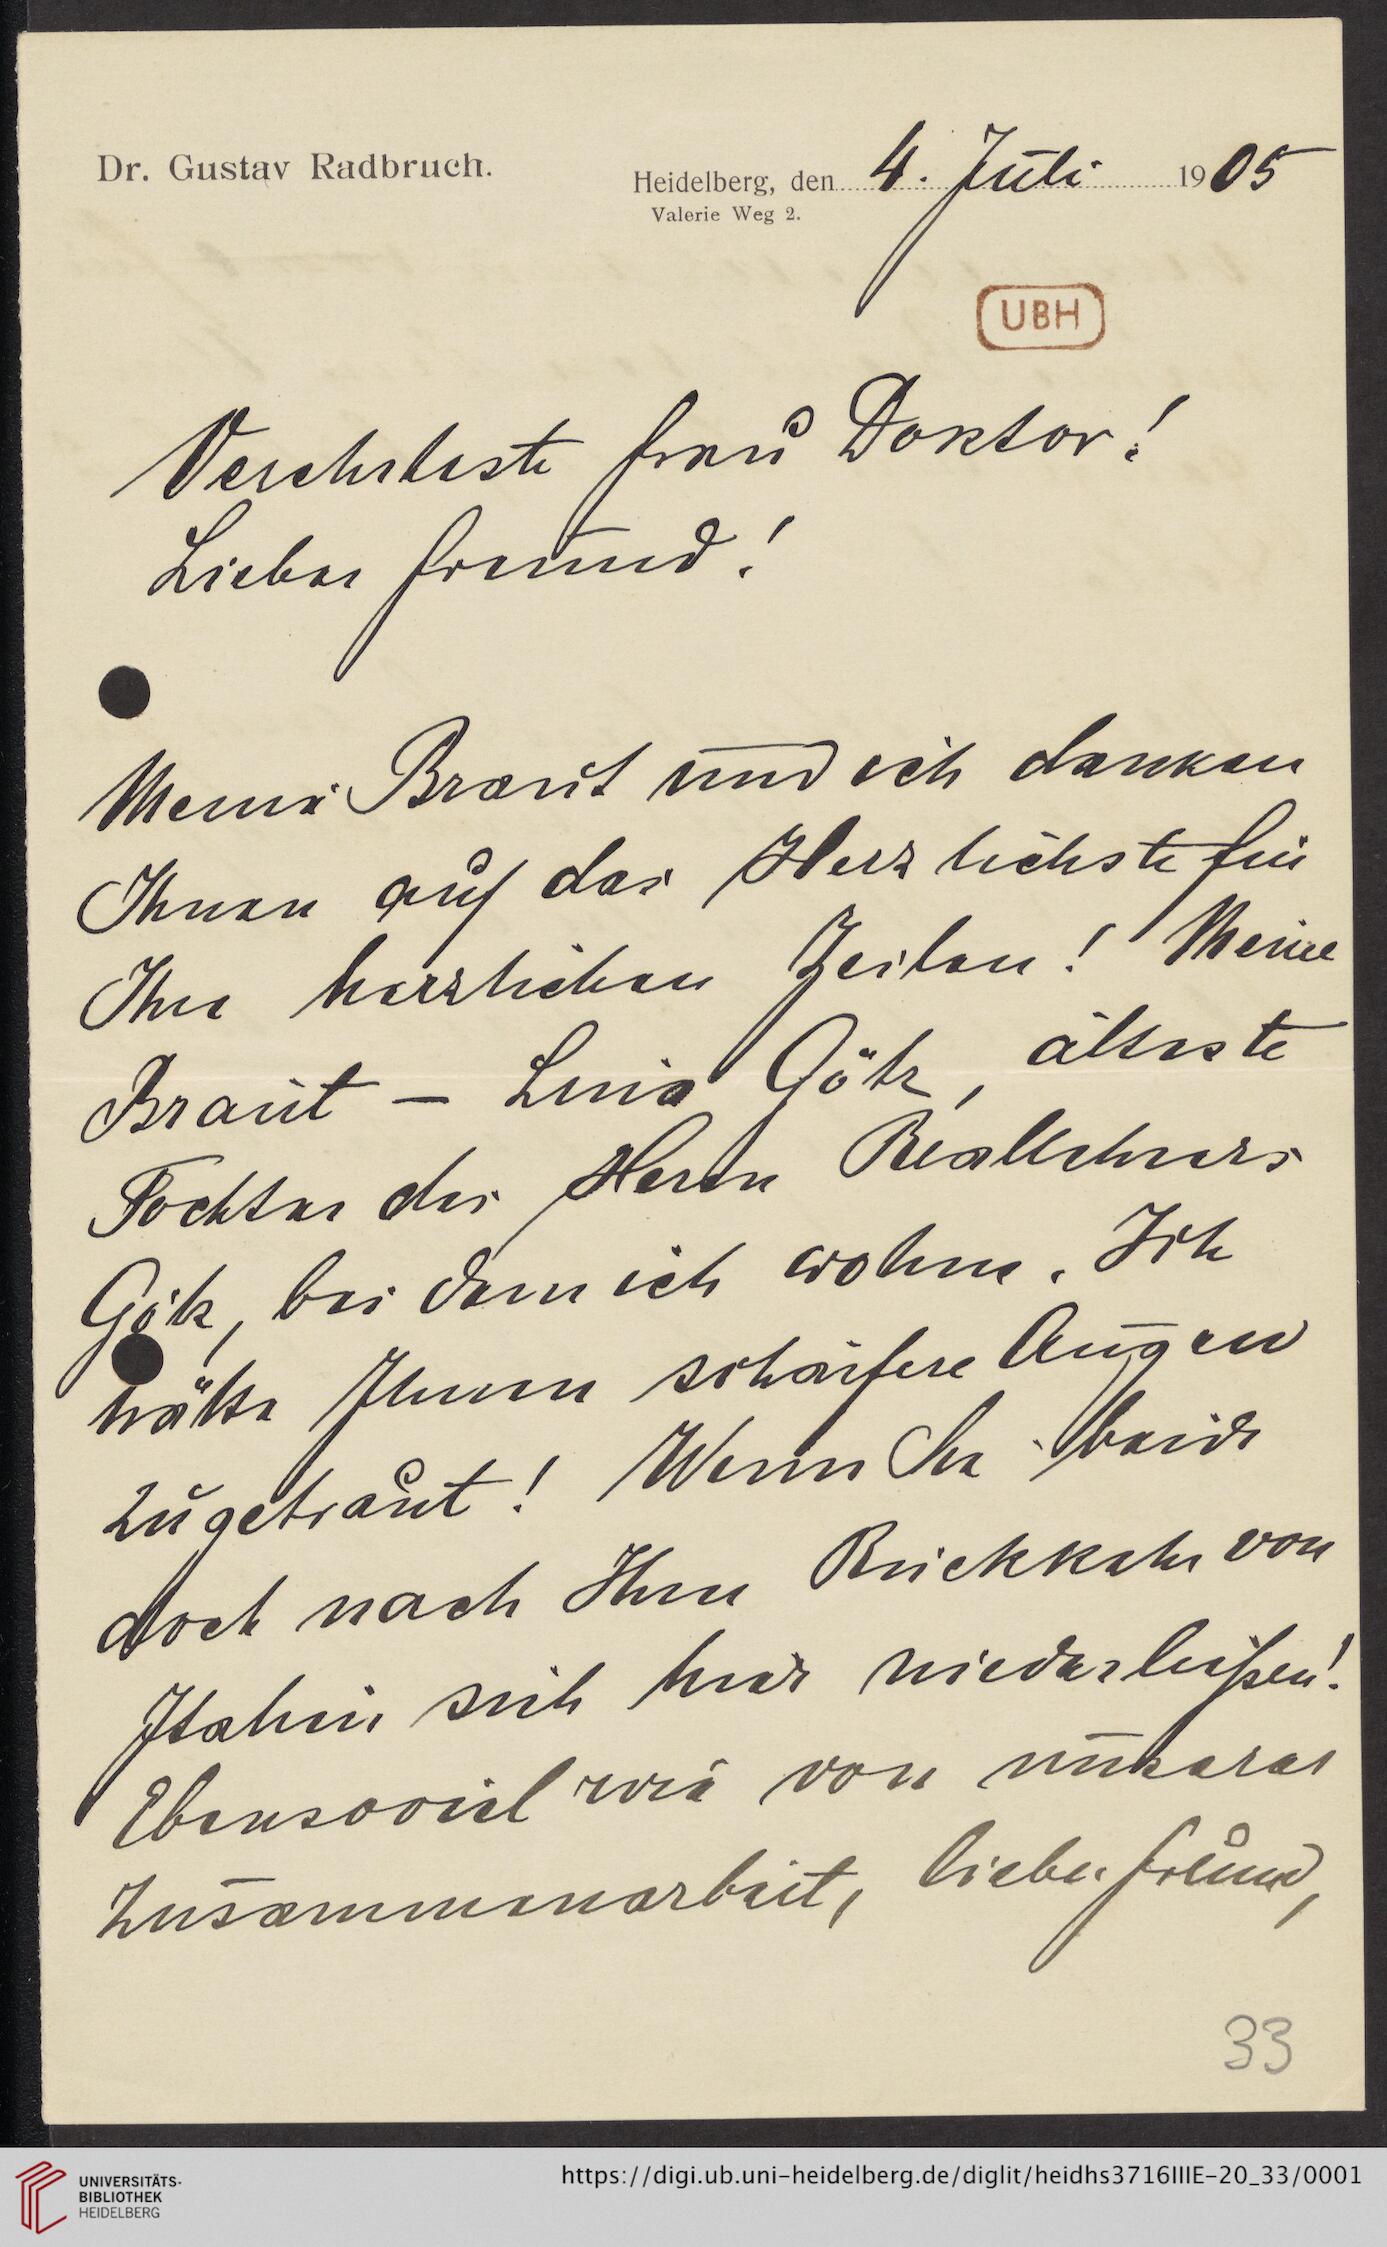 Dr. Gustav Radbruch.
Heidelberg, den 4. Juli 1905
Valerie Weg 2.
UBH
Verehrteste Frau Doktor!
Lieber Freund!
Meine Braut und ich danken
Ihnen auf das Herzlichste für
Ihre herzlichen Zeilen! Meine
Braut – Lina Götz, älteste
Tochter des Herrn Reallehrers
Götz, bei dem ich wohne. Ich
hätte Ihnen schärfere Augen
zugetraut! Wenn Sie beide
doch nach Ihrer Rückkehr von
Italien sich hier niederließen!
Ebensoviel wie von unserer
Zusammenarbeit, lieber Freund,
33
UNIVERSITÄTS-
BIBLIOTHEK
HEIDELBERG
https://digi.ub.uni-heidelberg.de/diglit/heidhs3716IIIE-20_33/0001